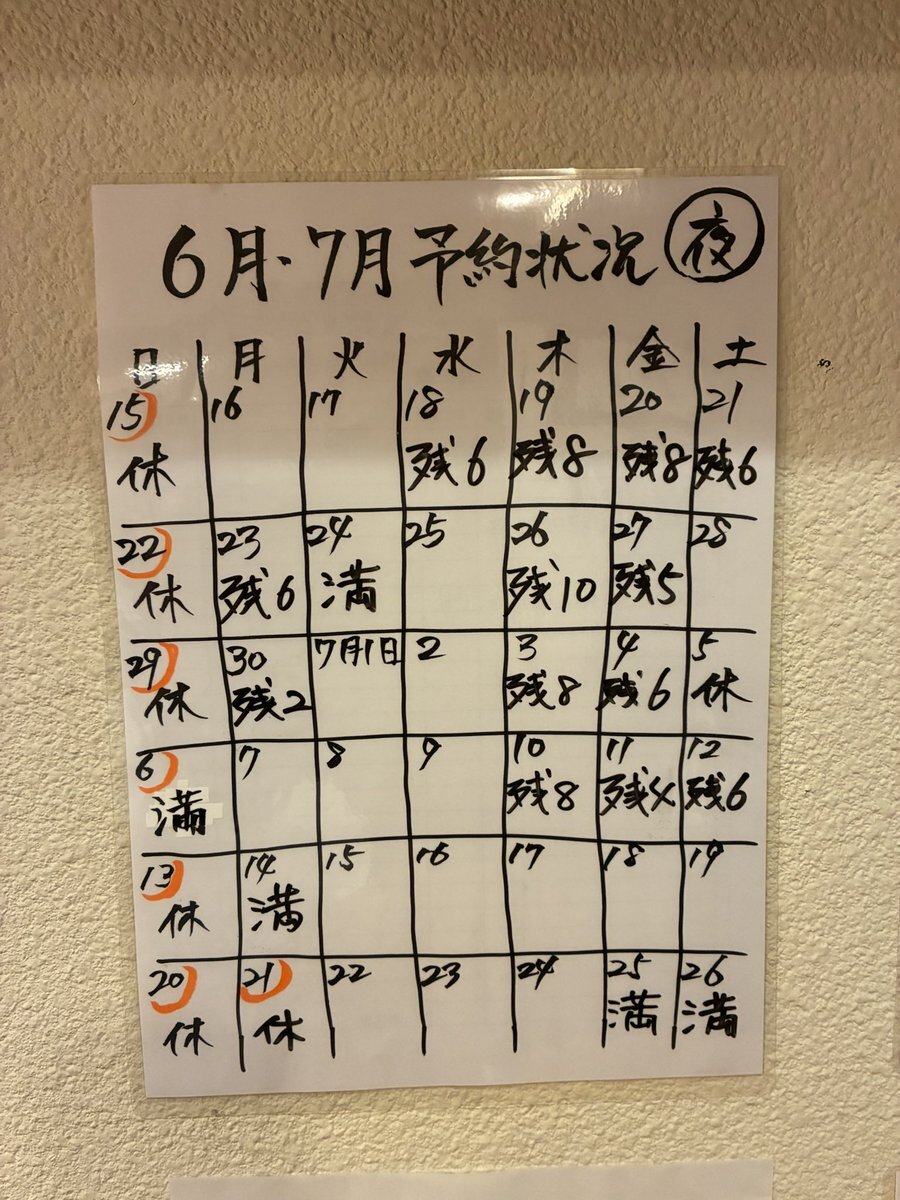 6月・7月予約状況 夜
日 月 火 水 木 金 土
15 16 17 18 19 20 21
休 残6 残8 残8 残6
22 23 24 25 26 27 28
休 残6 満 残10 残5
29 30 7月1日 2 3 4 5
休 残2 残8 残6 休
6 7 8 9 10 11 12
満 残8 残4 残6
13 14 15 16 17 18 19
休 満
20 21 22 23 24 25 26
休 休 満 満